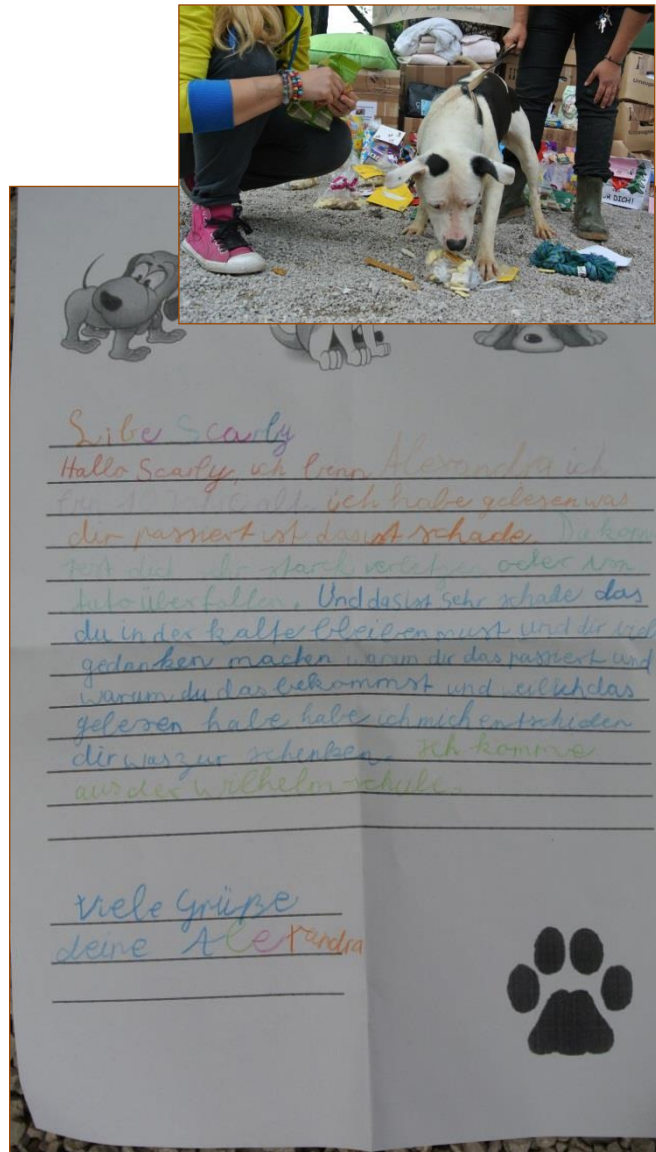 DICH!
Libe Scarly
Hallo Scarly, ich binn Alexandra ich
bin 10 Jahre alt. ich habe gelesen was
dir passiert ist das ist schade. Du kon
test dich sehr starck verletzen oder von
auto überfallen. Und das ist sehr schade das
du in der kälte bleiben must und dir viel
gedanken machen warum dir das passiert und
warum du das bekommst und weil ich das
gelesen habe habe ich mich entschiden
dir was zur schenken. Ich komme
aus der wilhelm-schule.
Viele Grüße
deine Alexandra